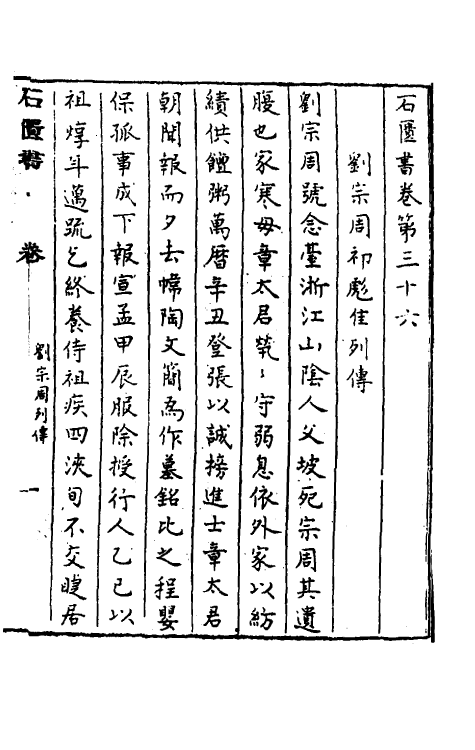 石匱書卷第三十六
劉宗周祁彪佳列傳
劉宗周號念臺浙江山陰人父坡死宗周其遺
腹也家寒毋章太君煢〻守弱息依外家以紡
績供饘粥萬曆辛丑登張以誠榜進士章太君
朝聞報而夕去幃陶文簡為作墓銘比之程嬰
保孤事成下報宣孟甲辰服除授行人乙巳以
祖焞年邁疏乞終養侍祖疾四浹旬不交睫居
石匱書 卷 劉宗周列傳 一